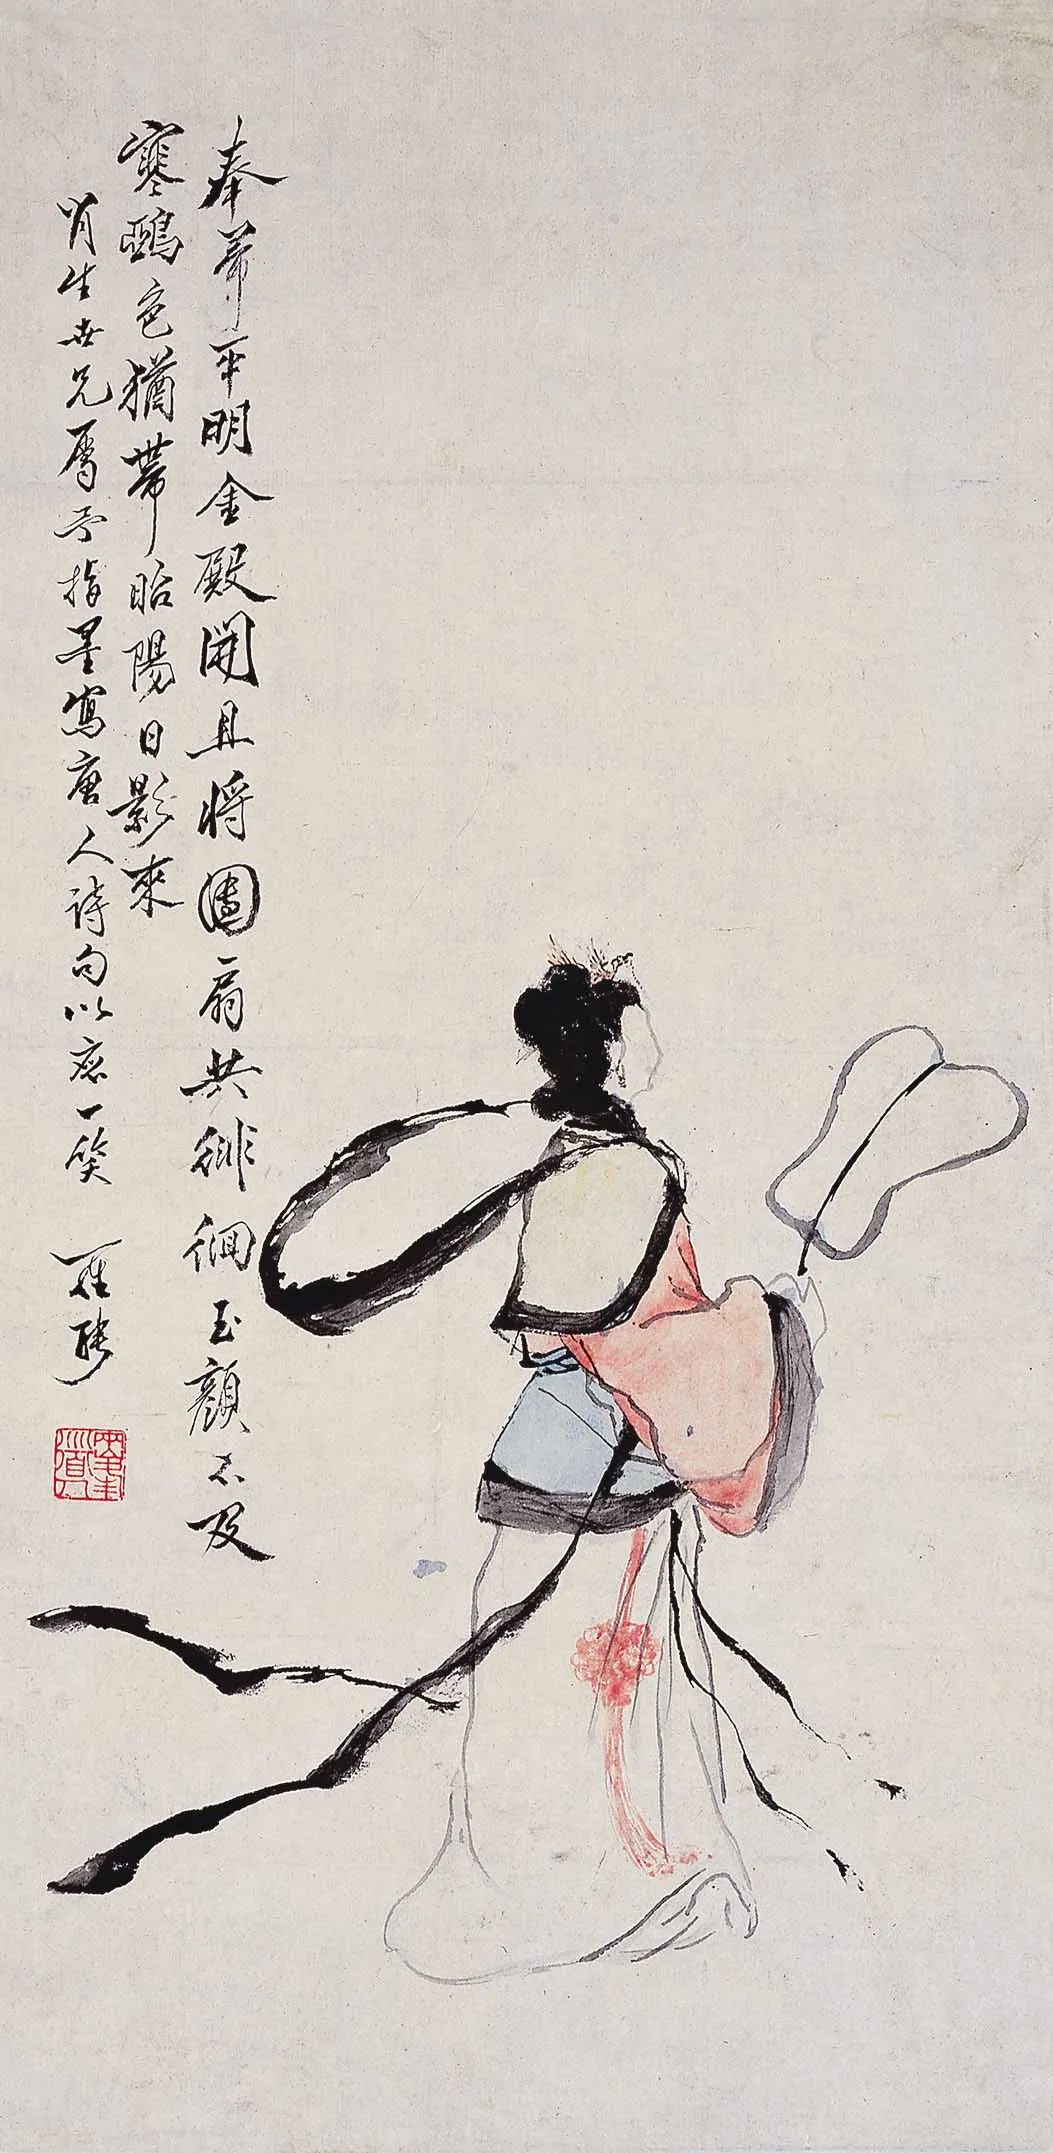 奉帚平明金殿開且将團扇共徘徊玉顏不及
寒鵶色猶帶昭陽日影來
肖生世兄屬予指墨寫唐人詩句以應一笑 羅聘
兩峯道人